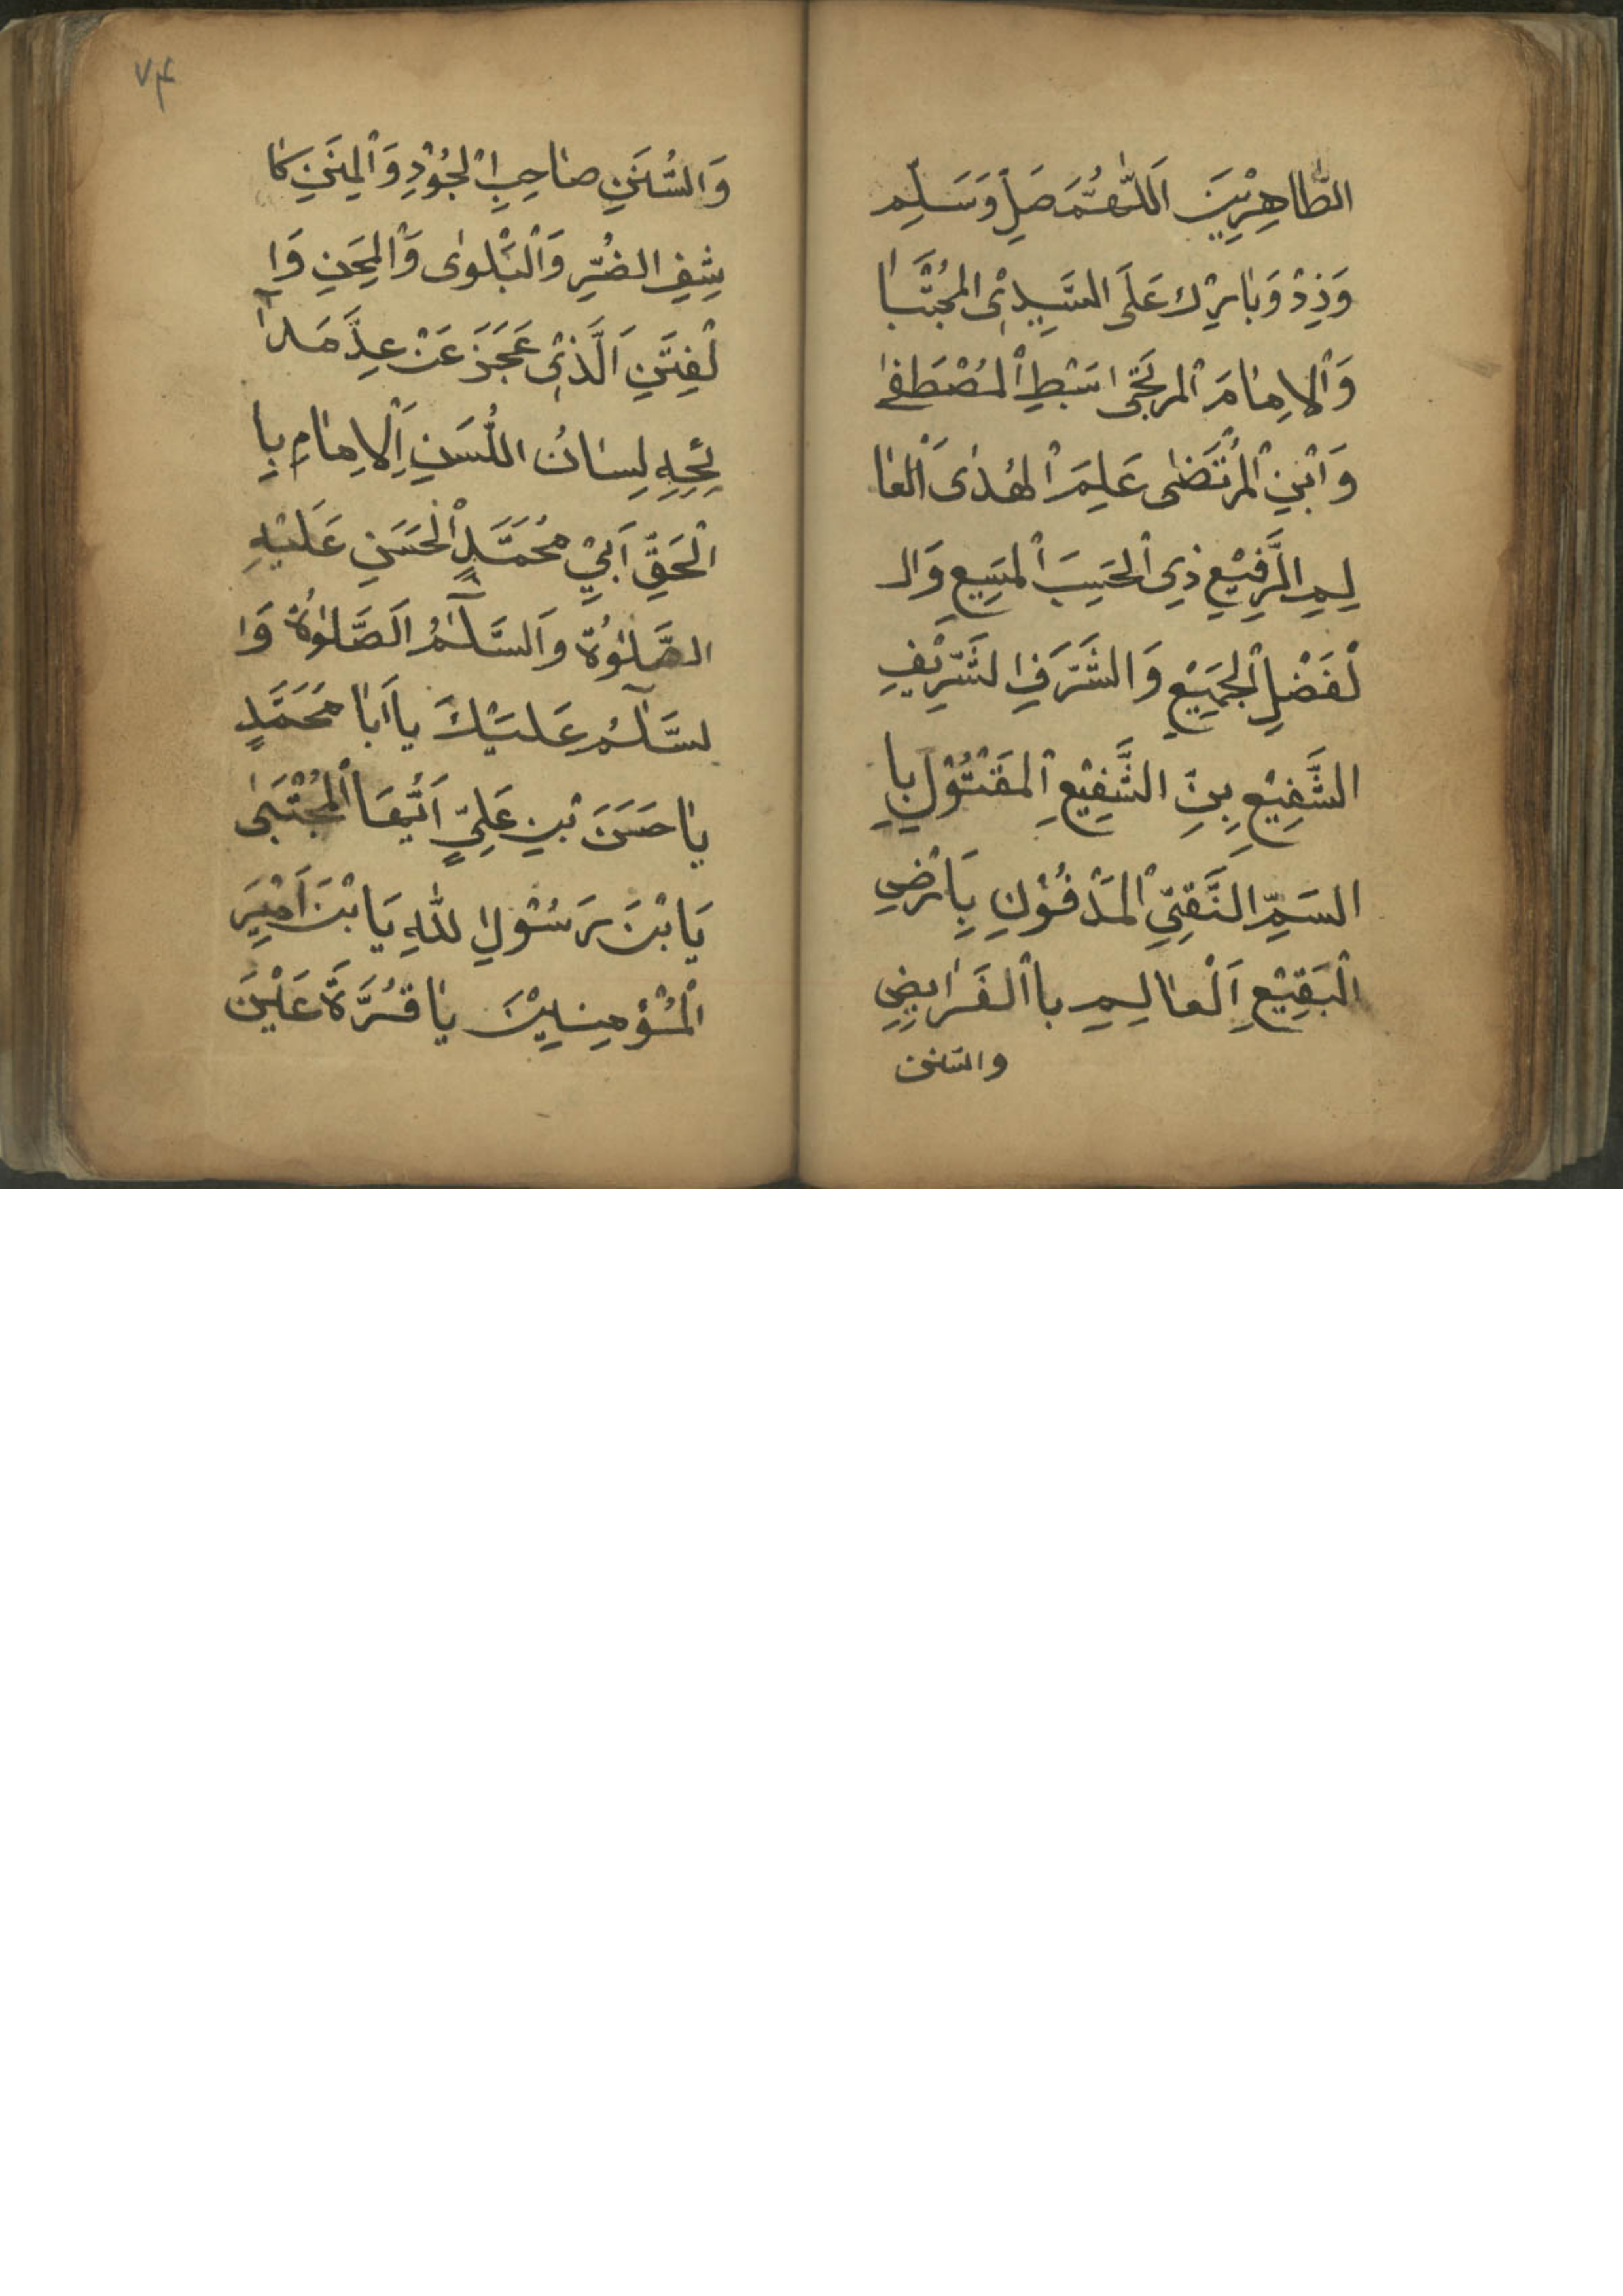 الطّاهِرِيْنَ اَللّٰهُمَّ صَلِّ وَسَلِّم
وَزِدْ وَبٰارِكْ عَلَى السَّيِّدِ الْمُجْتَبٰا
وَاْلاِمٰامَ الْمرتَجٰى سَبْطِ الْمُصْطَفٰى
وَابْنِ الْمُرْتَضٰى عَلِمَ الْهُدٰى اَلْعٰا
لِمِ الرَّفِيْعِ ذِى الْحَسِبَ الْمَنِيعِ وَالـ
لْفَضْلِ الْجَمِيْعِ وَالشَّرَفِ الشَّرِيْفِ
الشَّفِيْعِ بِنِ الشَّفِيْعِ اِلْمَقْتُوْلِ بِا
السَمِّ النَّقِيِّ الْمَدْفُوْنِ بِاَرْضِ
الْبَقِيْعِ اَلْعٰالِمِ بااْلفَرٰايِضِ
والسّنن
٧٤
وَالسُّنَنِ صٰاحِبِ الْجُوْدِ وَالْمِنَنِ كٰا
شِفِ الضُّرِّ وَالْبَلْوٰى وَالْمِحَنِ وَا
لْفِتَنِ اَلَّذِيْ عَجَزَ عَنْ عِدَّ مَدٰا
ئِحِهِ لِسٰانُ اللُّسَنِ اَلاِمٰامِ بِا
الْحَقِّ اَبِيْ مُحَمَّدٍ الْحَسَنِ عَلَيْهِ
الصَّلٰوةُ وَالسَّلٰامُ اَلصَّلٰوةُ وَا
لسَّلٰامُ عَلَيْكَ يااَبٰا مُحَمَّدٍ
يٰاحَسَنَ بْنِ عَلِيٍّ اَيُّهَا الْمُجْتَبٰى
يَابْنَ رَسُوْلِ اللهِ يَابْنَ اَمِيْرَ
الْمُؤمِنِيْنَ يٰاقُرَّةَ عَيْنَ